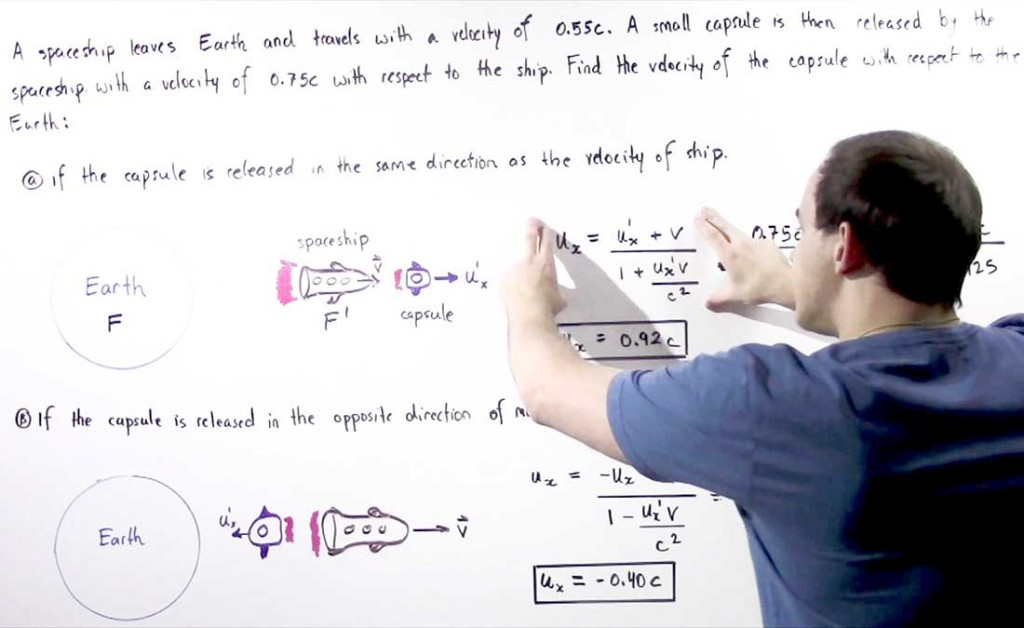 A spaceship leaves Earth and travels with a velocity of 0.55c. A small capsule is then released by the
spaceship with a velocity of 0.75c with respect to the ship. Find the velocity of the capsule with respect to the
Earth:
Ⓐ if the capsule is released in the same direction as the velocity of ship.
Earth
F
spaceship
v⃗
u'x
F'
capsule
ux = u'x + v / 1 + ux'v / c²
0.75c
125
x = 0.92c
Ⓑ If the capsule is released in the opposite direction of
Earth
u'x
v⃗
ux = -ux / 1 - ux'v / c² =
ux = -0.40c